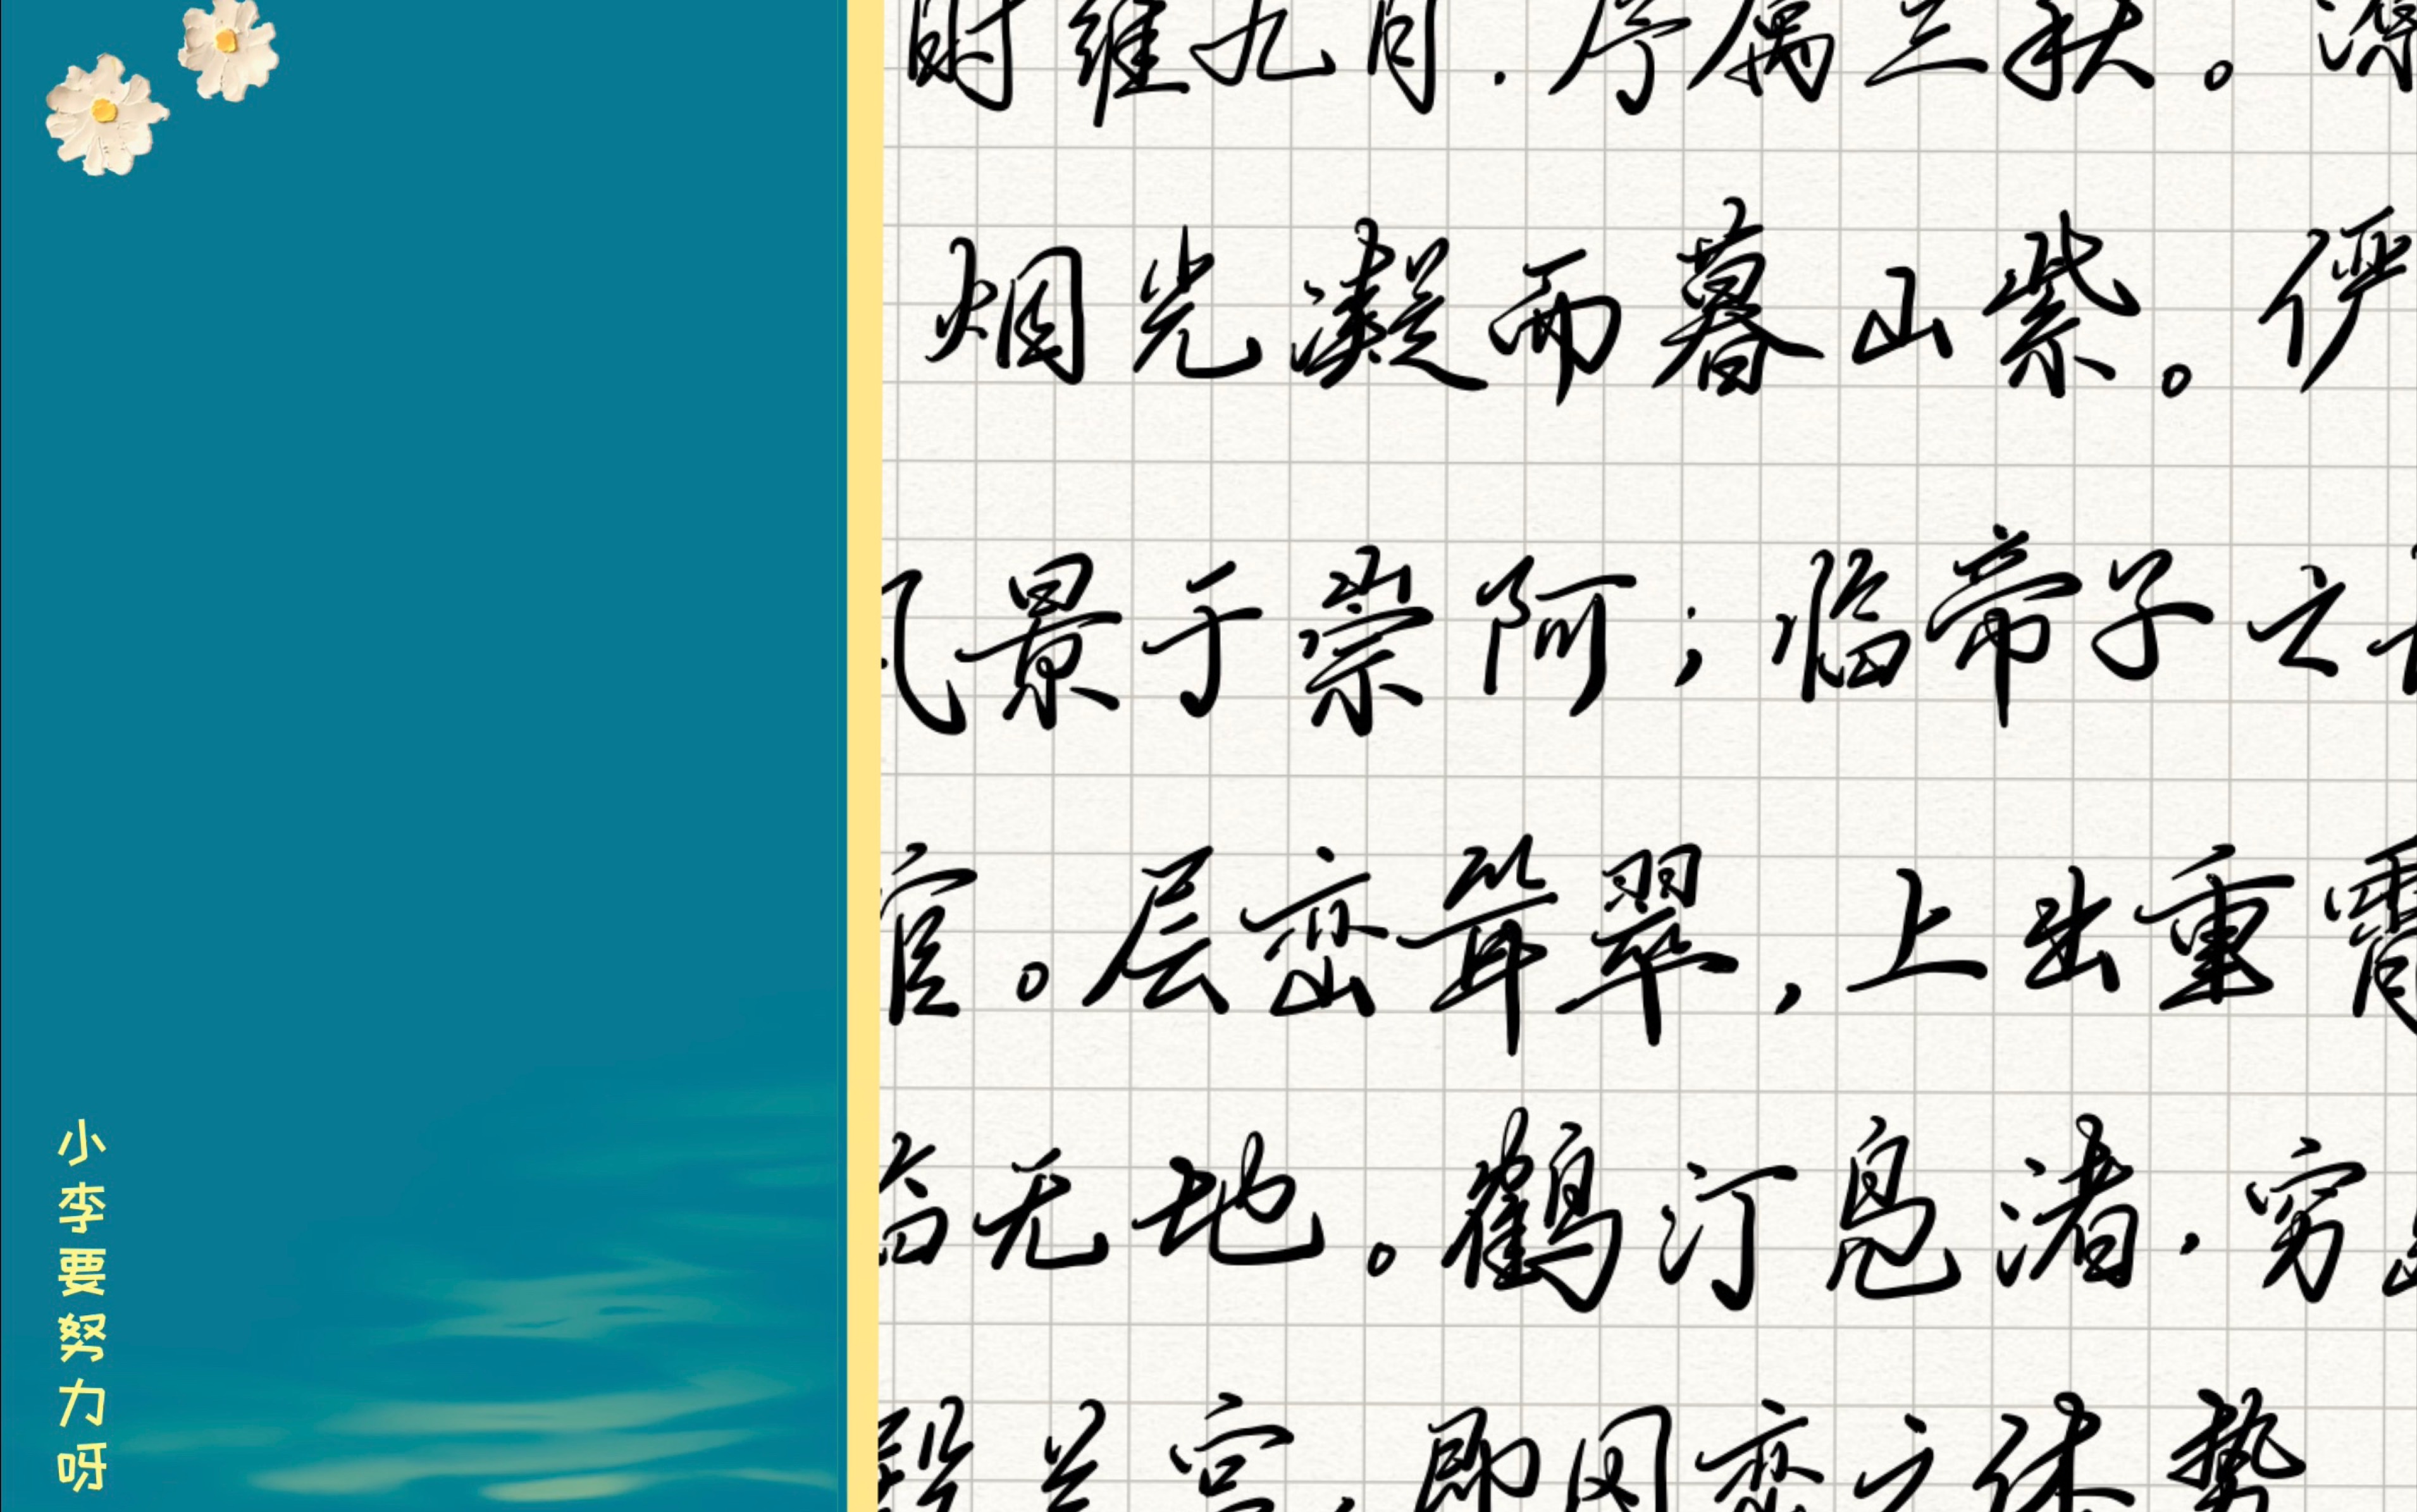 小李要努力呀
时维九月，序属三秋。潦
烟光凝而暮山紫。俨
风景于崇阿；临帝子之
官。层峦耸翠，上出重霄
临无地。鹤汀凫渚，穷
殿兰宫，即冈峦之体势